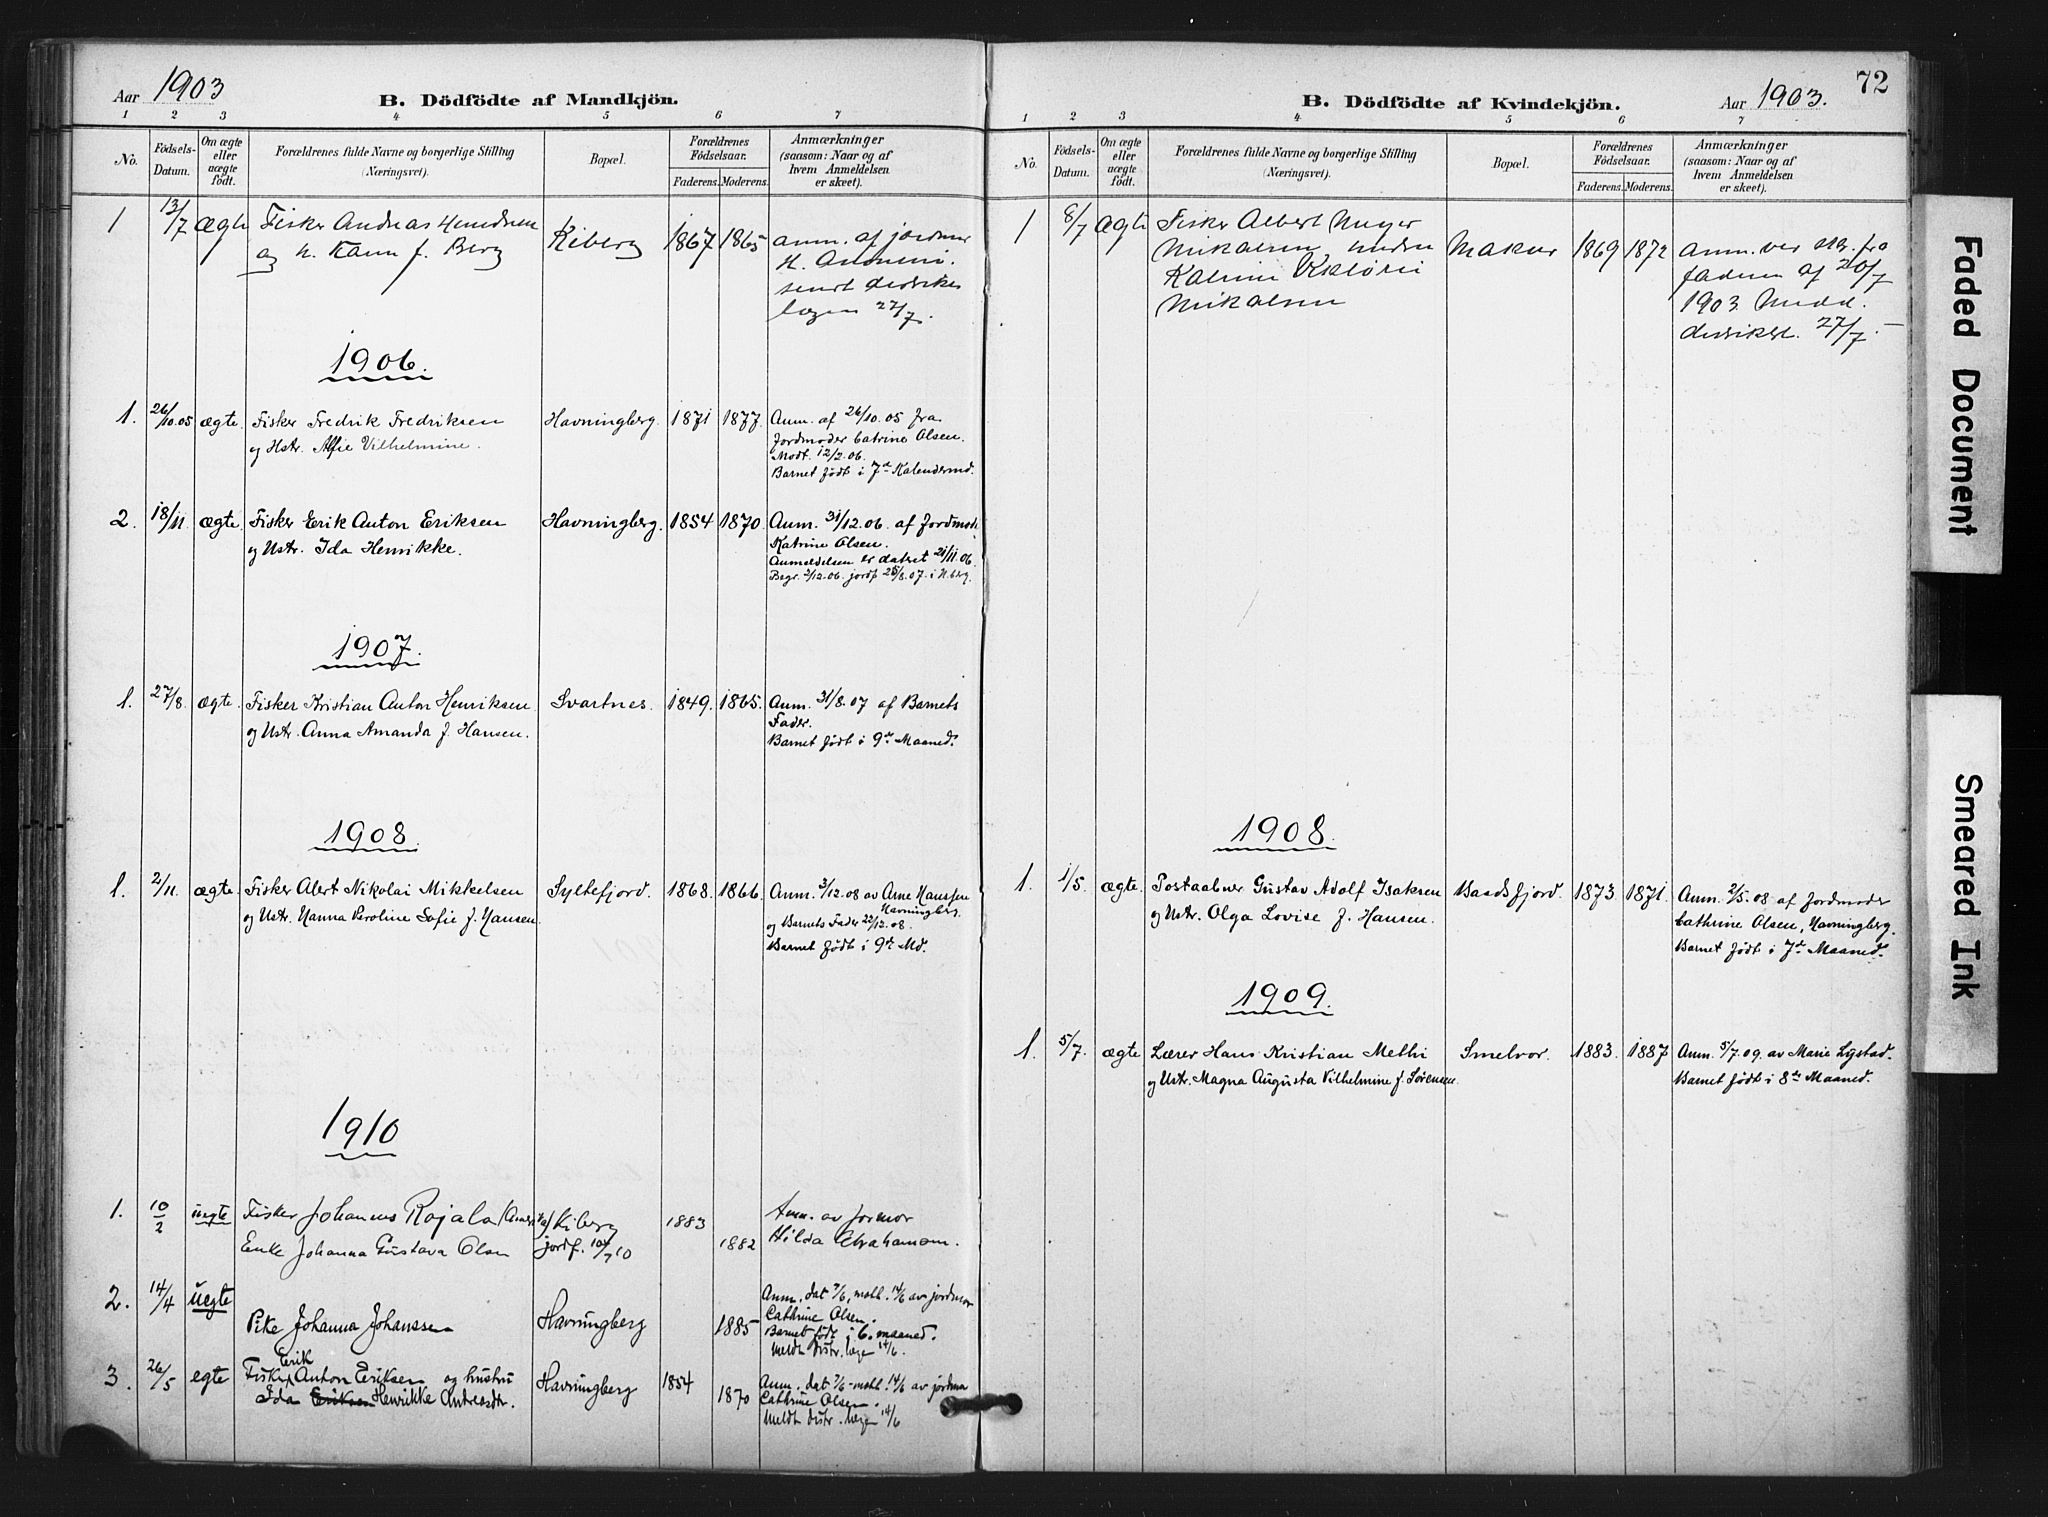 Aar 1903
B. Dödfödte af Mandkjön.
1 2 3 4 5 6 7
No.
Födsels-Datum.
Om ægte eller uægte födt.
Forældrenes fulde Navne og borgerlige Stilling
(Næringsvei).
Bopæl.
Forældrenes Födselsaar.
Faderens. Moderens.
Anmærkninger
(saasom: Naar og af
hvem Anmeldelsen
er skeet).
1 13/7 Ægte Fisker Andreas Kiberg 1867 1865 anm. af jordmor
og h. f. Berg
H.
sendt distrikts
lægen 27/7.
1906.
1. 26/10.05 ægte. Fisker Fredrik Fredriksen Havningberg. 1871 1877. Anm. af 26/10.05 fra
og Hstr. Alfie Vilhelmine. Jordmoder Catrine Olsen.
Modt. 12/2.06.
Barnet født i 7de Kalendermd.
2. 18/11. ægte. Fisker Erik Anton Eriksen Havningberg. 1854 1870. Anm. 31/12.06. af Jordmod.
og Hstr. Ida Henrikke. Katrine Olsen.
Anmeldelsen er dateret 21/11.06.
Begr. 2/12.06. jordf. 25/8.07. i H.berg.
1907.
1. 27/8. ægte. Fisker Kristian Anton Henriksen Svartnes. 1849. 1865. Anm. 31/8.07 af Barnets
og Hstr. Anna Amanda f. Hansen. Fader.
Barnet født i 9de Maaned.
1908.
1. 2/11. ægte. Fisker Alert Nikolai Mikkelsen Syltefjord. 1868. 1866. Anm. 3/12.08 av Arne Hansen
og Hstr. Hanna Peroline Sofie f. Hansen. Havningberg
og Barnets Fader 22/12.08.
Barnet født i 9de Md.
1910
1. 10/2 uegte Fisker Johannes Rajala Kiberg 1883 Anm. av jormor
Enke Johanna Gustava Olsen jordf. 10/7 10 1882 Hilda Abrahamsen.
2. 14/4 uegte Anm. dat 7/6, mott. 14/6 av jordmor
Cathrine Olsen.
Pike Johanna Johanssen Havningberg 1885 Barnet født i 6. maaned.
Meldt distr. læge 14/6.
3. 26/5 egte Fisker Erik Anton Eriksen og hustru Havningberg 1854 Anm. dat 7/6 - mott. 14/6 av jordmor
Ida Eriksen Henrikke Andreasdtr. 1870 Cathrine Olsen.
Meldt distr. læge 14/6
72
B. Dödfödte af Kvindekjön.
Aar 1903.
1 2 3 4 5 6 7
No.
Födsels-Datum.
Om ægte eller uægte födt.
Forældrenes fulde Navne og borgerlige Stilling
(Næringsvei).
Bopæl.
Forældrenes Födselsaar.
Faderens. Moderens.
Anmærkninger
(saasom: Naar og af
hvem Anmeldelsen
er skeet).
1 8/7 Ægte Fisker Albert Meyer
Mikalsen Makur 1869 1872 anm. ved skr. fra
Mikalsen faderen af 20/7
1903 Medd.
distriktsl. 27/7.
1908.
1. 1/5. ægte. Postaabner Gustav Adolf Isaksen Baadsfjord. 1873. 1871. Anm. 2/5.08 af Jordmoder
og Hstr. Olga Lovise f. Hansen. Cathrine Olsen, Havningberg.
Barnet født i 7de Maaned.
1909.
1. 5/7. ægte Lærer Hans Kristian Methi Smelvor. 1883. 1887 Anm. 5/7.09. av Marie Lystad.
og Hstr. Magna Augusta Vilhelmine f. Sørensen. Barnet født i 8de Maaned.
Faded Document
Smeared Ink